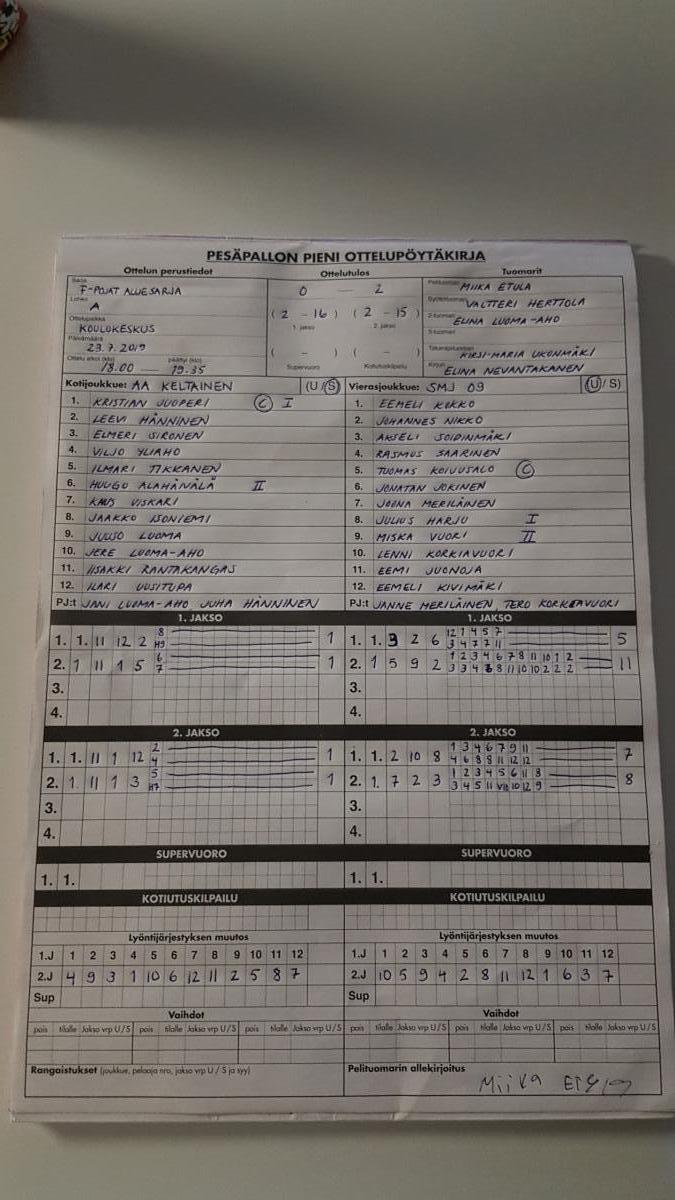 PESÄPALLON PIENI OTTELUPÖYTÄKIRJA
Ottelun perustiedot Ottelutulos Tuomarit
Sarja F-POJAT ALUESARJA
Lohko A
Ottelupaikka KOULUKESKUS
Päivämäärä 23.7.2019
Ottelu alkoi (klo) 18.00 — päättyi (klo) 19.35
0 — 2
(2 - 16) (2 - 15)
1. jakso 2. jakso
( - ) ( - )
Supervuoro Kotiutuskilpailu
Pelituomari MIIKA ETULA
Syöttötuomari VALTTERI HERTTOLA
2-tuomari ELINA LUOMA-AHO
3-tuomari
Takarajatuomari KIRSI-MARIA UKONMÄKI
Kirjuri ELINA NEVANTAKANEN
Kotijoukkue: AA KELTAINEN (U/S)
1. KRISTIAN JUOPERI C I
2. LEEVI HÄNNINEN
3. ELMERI SIRONEN
4. VILJO YLIAHO
5. ILMARI TIKKANEN
6. HUUGO ALAHÄNÄLÄ II
7. VISKARI
8. JAAKKO ISONIEMI
9. JUUSO LUOMA
10. JERE LUOMA-AHO
11. IISAKKI RANTAKANGAS
12. ILARI UUSITUPA
PJ:t JANI LUOMA-AHO JUHA HÄNNINEN
Vierasjoukkue: SMJ 09 (U/S)
1. EEMELI KOKKO
2. JOHANNES NIKKO
3. AKSELI SOIDINMÄKI
4. RASMUS SAARINEN
5. TUOMAS KOIVUSALO C
6. JONATAN JOKINEN
7. JOONA MERILÄINEN
8. JULIUS HARJU I
9. MISKA VUORI II
10. LENNI KORKIAVUORI
11. EEMI JUONOJA
12. EEMELI KIVIMÄKI
PJ:t JANNE MERILÄINEN, TERO KORKEAVUORI
1. JAKSO 1. JAKSO
1. 1. 11 12 2 8 H9 1
2. 1 11 1 5 6 7 1
3.
4.
1. 1. 3 2 6 12 1 4 5 7 5
3 4 7 7 11
2. 1 5 9 2 1 2 3 4 6 7 8 11 10 1 2 11
3 3 4 8 8 11 10 10 2 2 2
3.
4.
2. JAKSO 2. JAKSO
1. 1. 11 1 12 2 4 1
2. 1. 11 1 3 5 H7 1
3.
4.
1. 1. 2 10 8 1 3 4 6 7 9 11 7
4 6 8 8 11 12 12
2. 1. 7 2 3 1 2 3 4 5 6 11 8 8
3 4 5 11 10 12 9
3.
4.
SUPERVUORO SUPERVUORO
1. 1. 1. 1.
KOTIUTUSKILPAILU KOTIUTUSKILPAILU
Lyöntijärjestyksen muutos Lyöntijärjestyksen muutos
1.J 1 2 3 4 5 6 7 8 9 10 11 12
2.J 4 9 3 1 10 6 12 11 2 5 8 7
Sup
1.J 1 2 3 4 5 6 7 8 9 10 11 12
2.J 10 5 9 4 2 8 11 12 1 6 3 7
Sup
Vaihdot Vaihdot
pois tilalle Jakso vrp U/S pois tilalle Jakso vrp U/S pois tilalle Jakso vrp U/S
pois tilalle Jakso vrp U/S pois tilalle Jakso vrp U/S pois tilalle Jakso vrp U/S
Rangaistukset (joukkue, pelaaja nro, jakso vrp U / S ja syy)
Pelituomarin allekirjoitus
Miika Etula